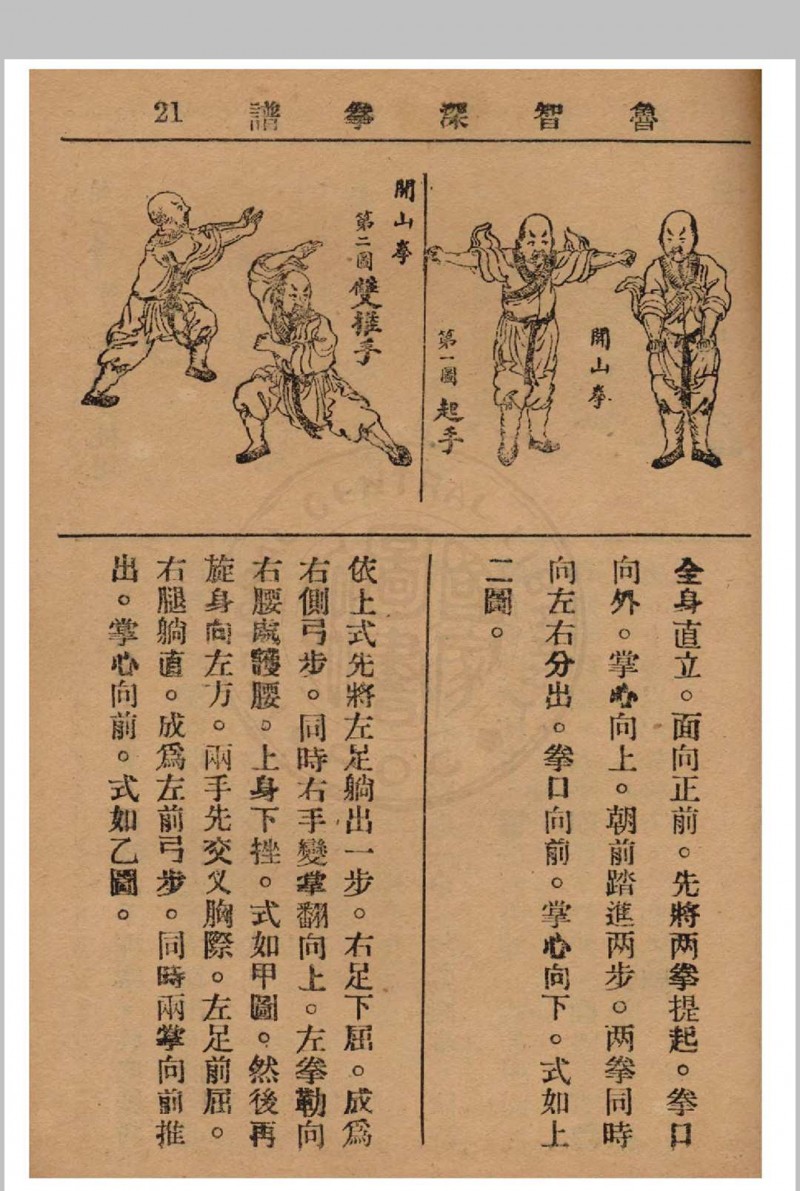 魯智深拳譜 21
開山拳
第一圖 起手
開山拳
第二圖 雙推手
全身直立。面向正前。先將两拳提起。拳口
向外。掌心向上。朝前踏進两步。两拳同時
向左右分出。拳口向前。掌心向下。式如上
二圖。
依上式先將左足躺出一步。右足下屈。成爲
右側弓步。同時右手變掌翻向上。左拳勒向
右腰處護腰。上身下挫。式如甲圖。然後再
旋身向左方。兩手先交叉胸際。左足前屈。
右腿躺直。成爲左前弓步。同時兩掌向前推
出。掌心向前。式如乙圖。
CENTRAL